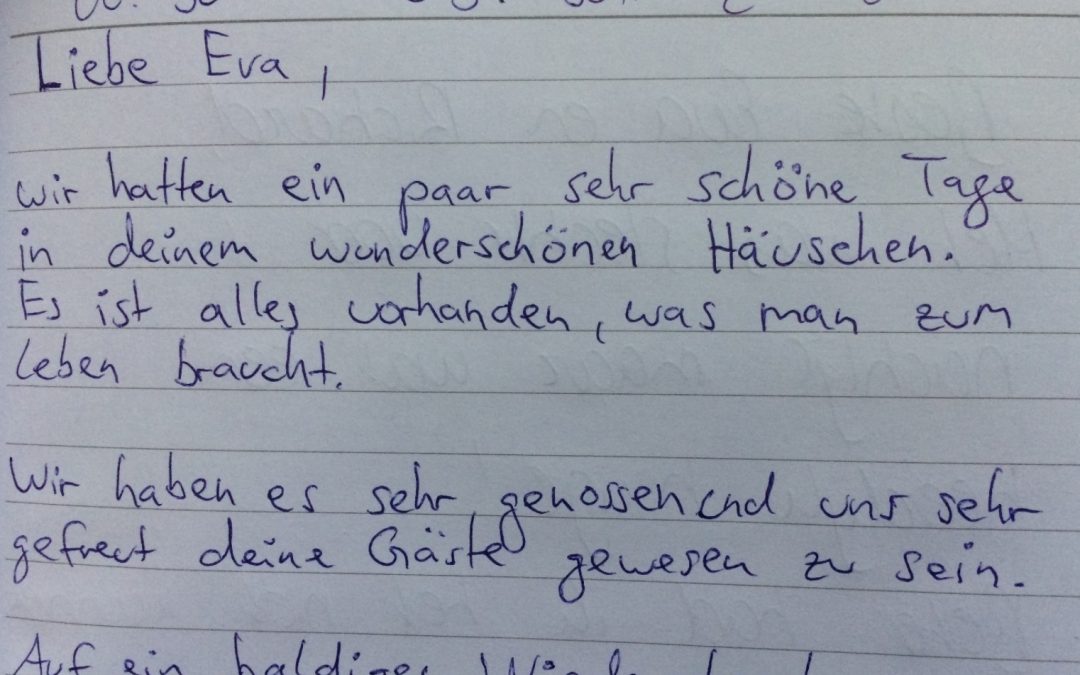 Liebe Eva,
wir hatten ein paar sehr schöne Tage
in deinem wunderschönen Häuschen.
Es ist alles vorhanden, was man zum
leben braucht.
Wir haben es sehr genossen und uns sehr
gefreut deine Gäste gewesen zu sein.
Auf ein baldiges